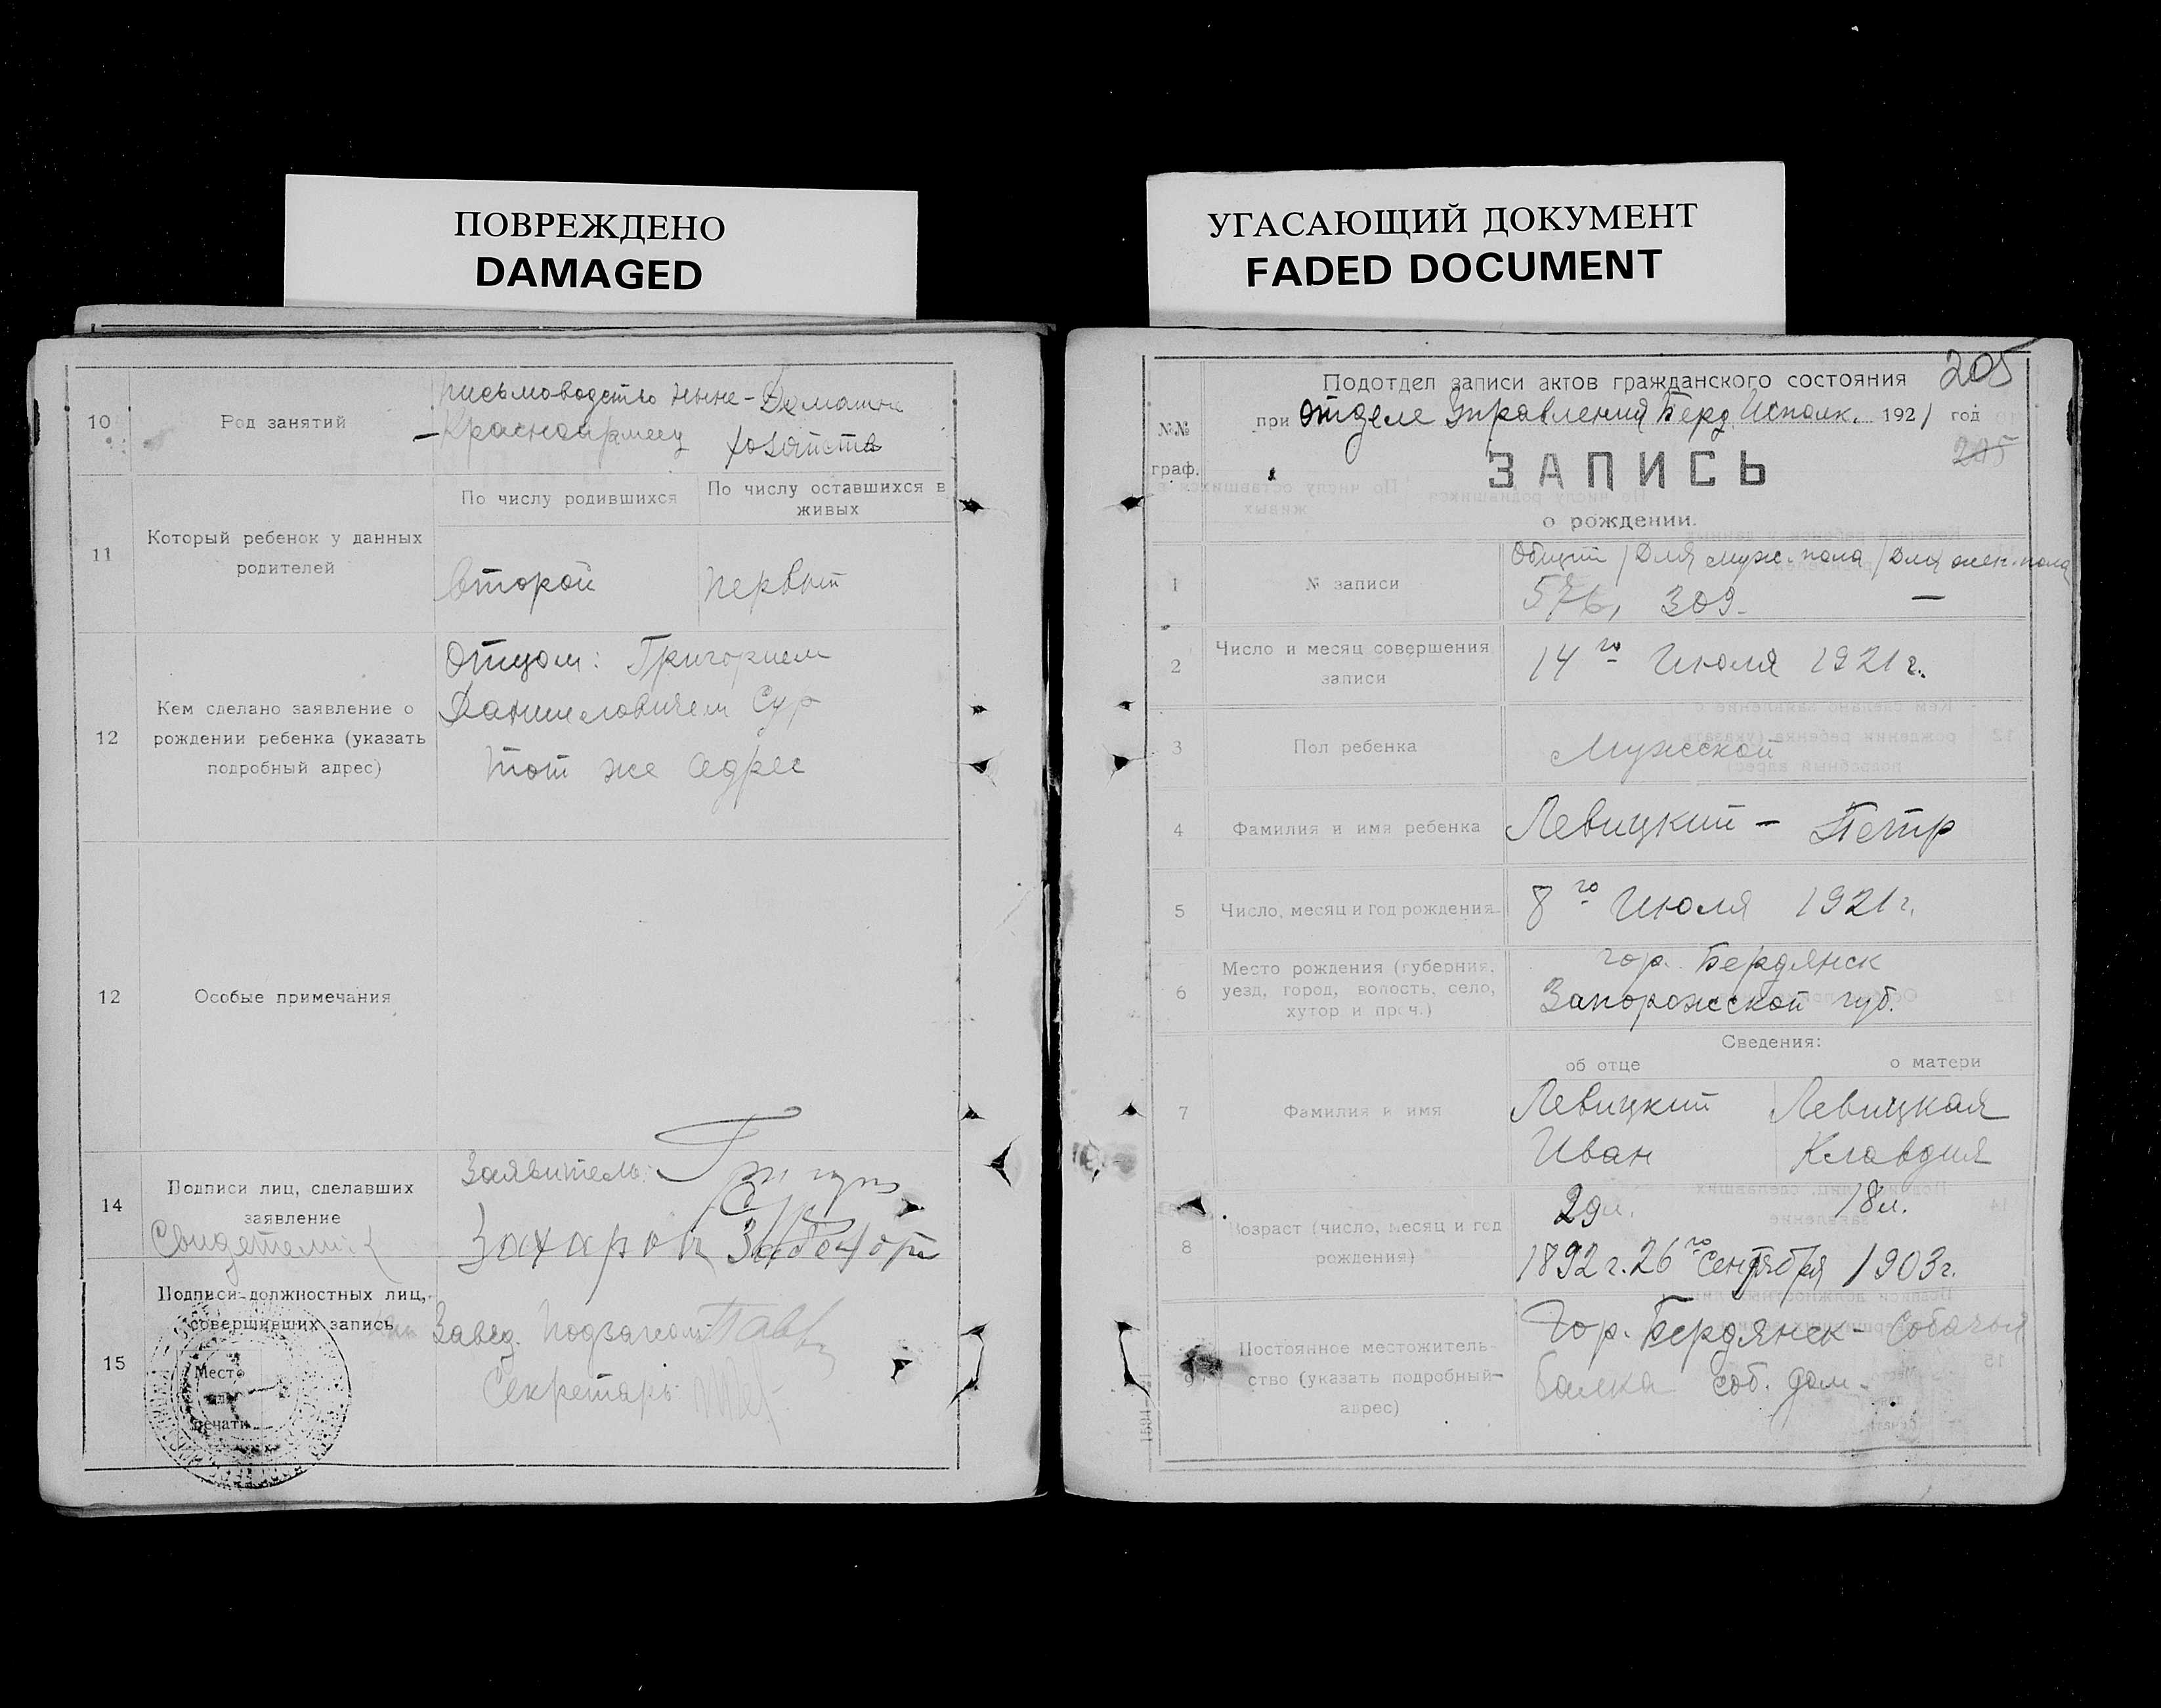 ПОВРЕЖДЕНО
DAMAGED
10
Род занятий
письмоводство ныне - Домашн
- Красноармеец хозяйство
11
Который ребенок у данных
родителей
По числу родившихся
По числу оставшихся в
живых
второй
первый
12
Кем сделано заявление о
рождении ребенка (указать
подробный адрес)
Отцом: Григорием
Данииловичем Сур
тот же адрес
12
Особые примечания
14
Подписи лиц, сделавших
заявление
Свидетели:
Заявитель:
Захаров
15
Подписи должностных лиц,
совершивших запись
Место
для
печати
Завед. Подзагсом
Секретарь
УГАСАЮЩИЙ ДОКУМЕНТ
FADED DOCUMENT
205
Подотдел записи актов гражданского состояния
при Отделе Управления Берд. Исполк. 1921 год
205
№№
граф.
ЗАПИСЬ
о рождении.
1
№ записи
Общий / Для муж. пола / Для жен. пола
576, 309. —
2
Число и месяц совершения
записи
14го Июля 1921 г.
3
Пол ребенка
Мужской
4
Фамилия и имя ребенка
Левицкий - Петр
5
Число, месяц и год рождения
8го Июля 1921 г.
6
Место рождения (губерния,
уезд, город, волость, село,
хутор и проч.)
гор. Бердянск
Запорожской губ.
Сведения:
об отце
о матери
7
Фамилия и имя
Левицкий
Иван
Левицкая
Клавдия
8
Возраст (число, месяц и год
рождения)
29 л.
18 л.
1892 г. 26го Сентября 1903 г.
9
Постоянное местожитель-
ство (указать подробный
адрес)
Гор. Бердянск - Собачья
балка соб. дом.